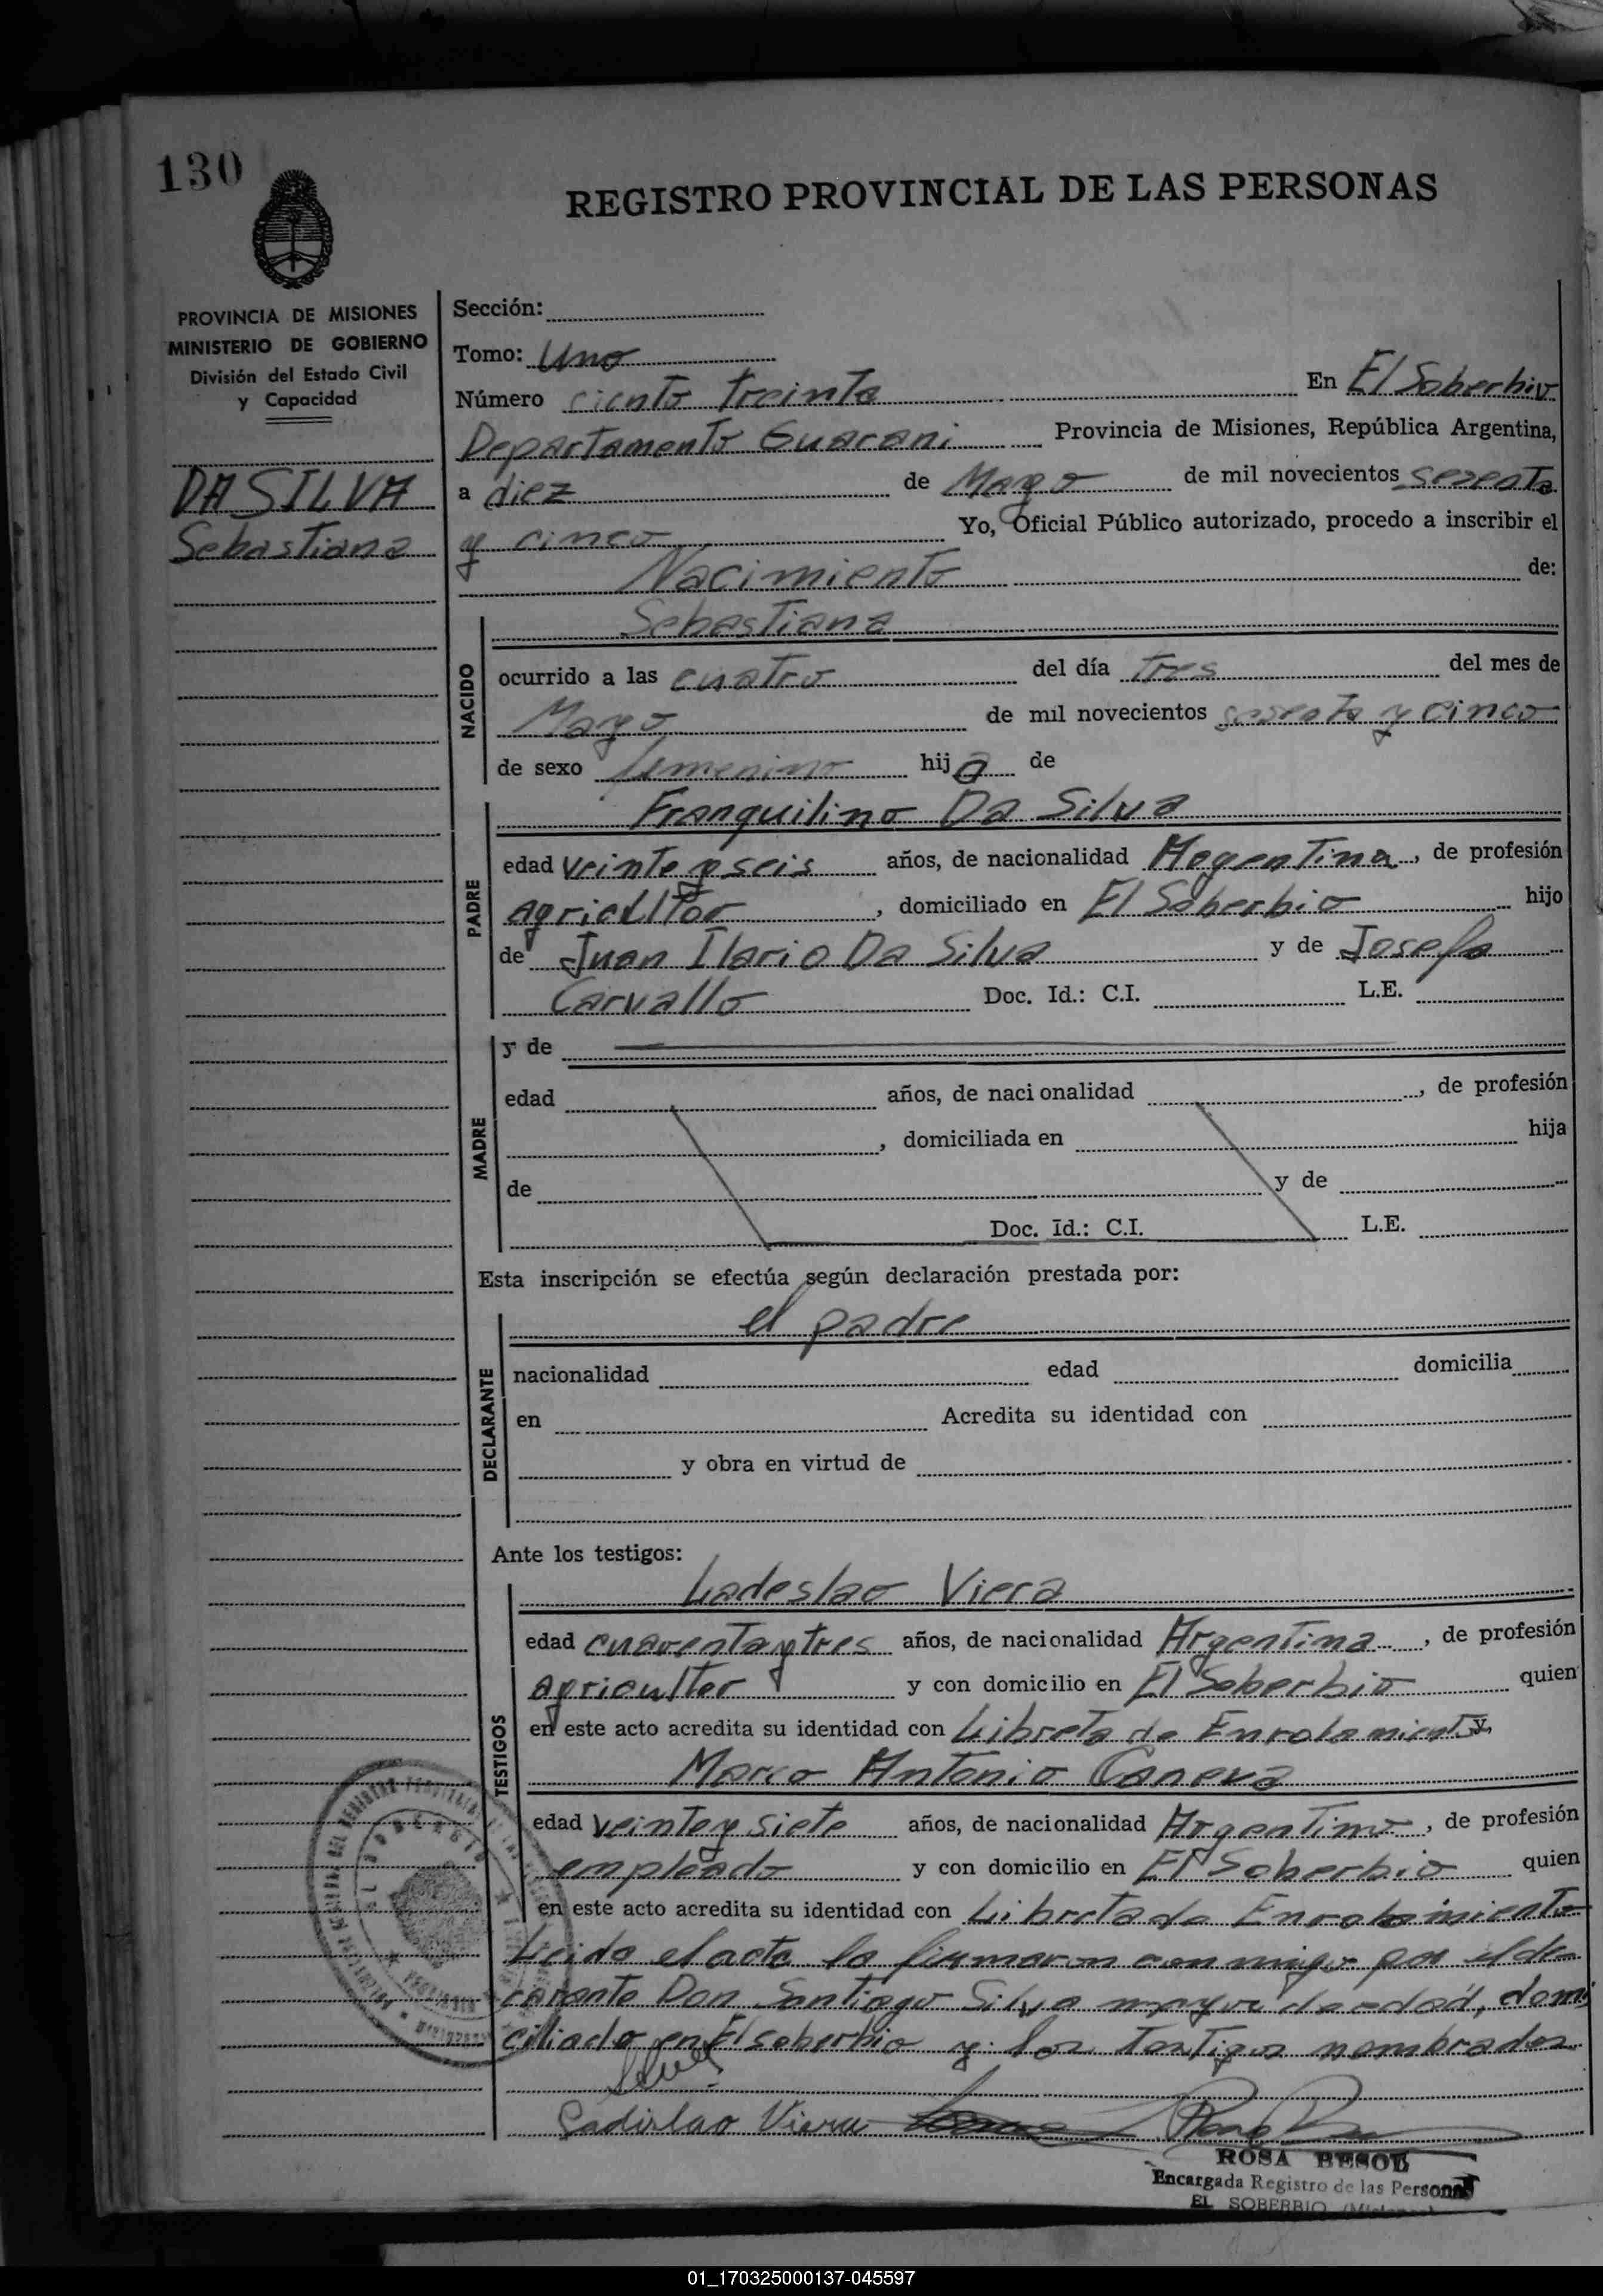 130
REGISTRO PROVINCIAL DE LAS PERSONAS
PROVINCIA DE MISIONES
MINISTERIO DE GOBIERNO
División del Estado Civil
y Capacidad
DA SILVA
Sebastiana
Sección:
Tomo: Uno
Número ciento treinta En El Soberbio
Departamento Guarani Provincia de Misiones, República Argentina,
a diez de Marzo de mil novecientos sesenta
y cinco Yo, Oficial Público autorizado, procedo a inscribir el
Nacimiento de:
NACIDO
Sebastiana
ocurrido a las cuatro del día tres del mes de
Marzo de mil novecientos sesenta y cinco
de sexo femenino hija de
PADRE
Franquilino Da Silva
edad veinte y seis años, de nacionalidad Argentina, de profesión
agricultor, domiciliado en El Soberbio hijo
de Juan Ilario Da Silva y de Josefa
Carvallo Doc. Id.: C.I. L.E.
MADRE
y de
edad años, de nacionalidad , de profesión
, domiciliada en hija
de y de
Doc. Id.: C.I. L.E.
Esta inscripción se efectúa según declaración prestada por:
DECLARANTE
el padre
nacionalidad edad domicilia
en Acredita su identidad con
y obra en virtud de
Ante los testigos:
TESTIGOS
Ladeslao Viera
edad cuarenta y tres años, de nacionalidad Argentina, de profesión
agricultor y con domicilio en El Soberbio quien
en este acto acredita su identidad con Libreta de Enrolamiento y
Marco Antonio Caneva
edad veinte y siete años, de nacionalidad Argentino, de profesión
empleado y con domicilio en El Soberbio quien
en este acto acredita su identidad con Libreta de Enrolamiento
Leida el acta la firmaron conmigo por el de
carante Don Santiago Silva mayor de edad, domi
ciliado en El soberbio y los testigos nombrados
Silva
Ladislao Viera
ROSA BESOL
Encargada Registro de las Personas
EL SOBERBIO
01_170325000137-045597